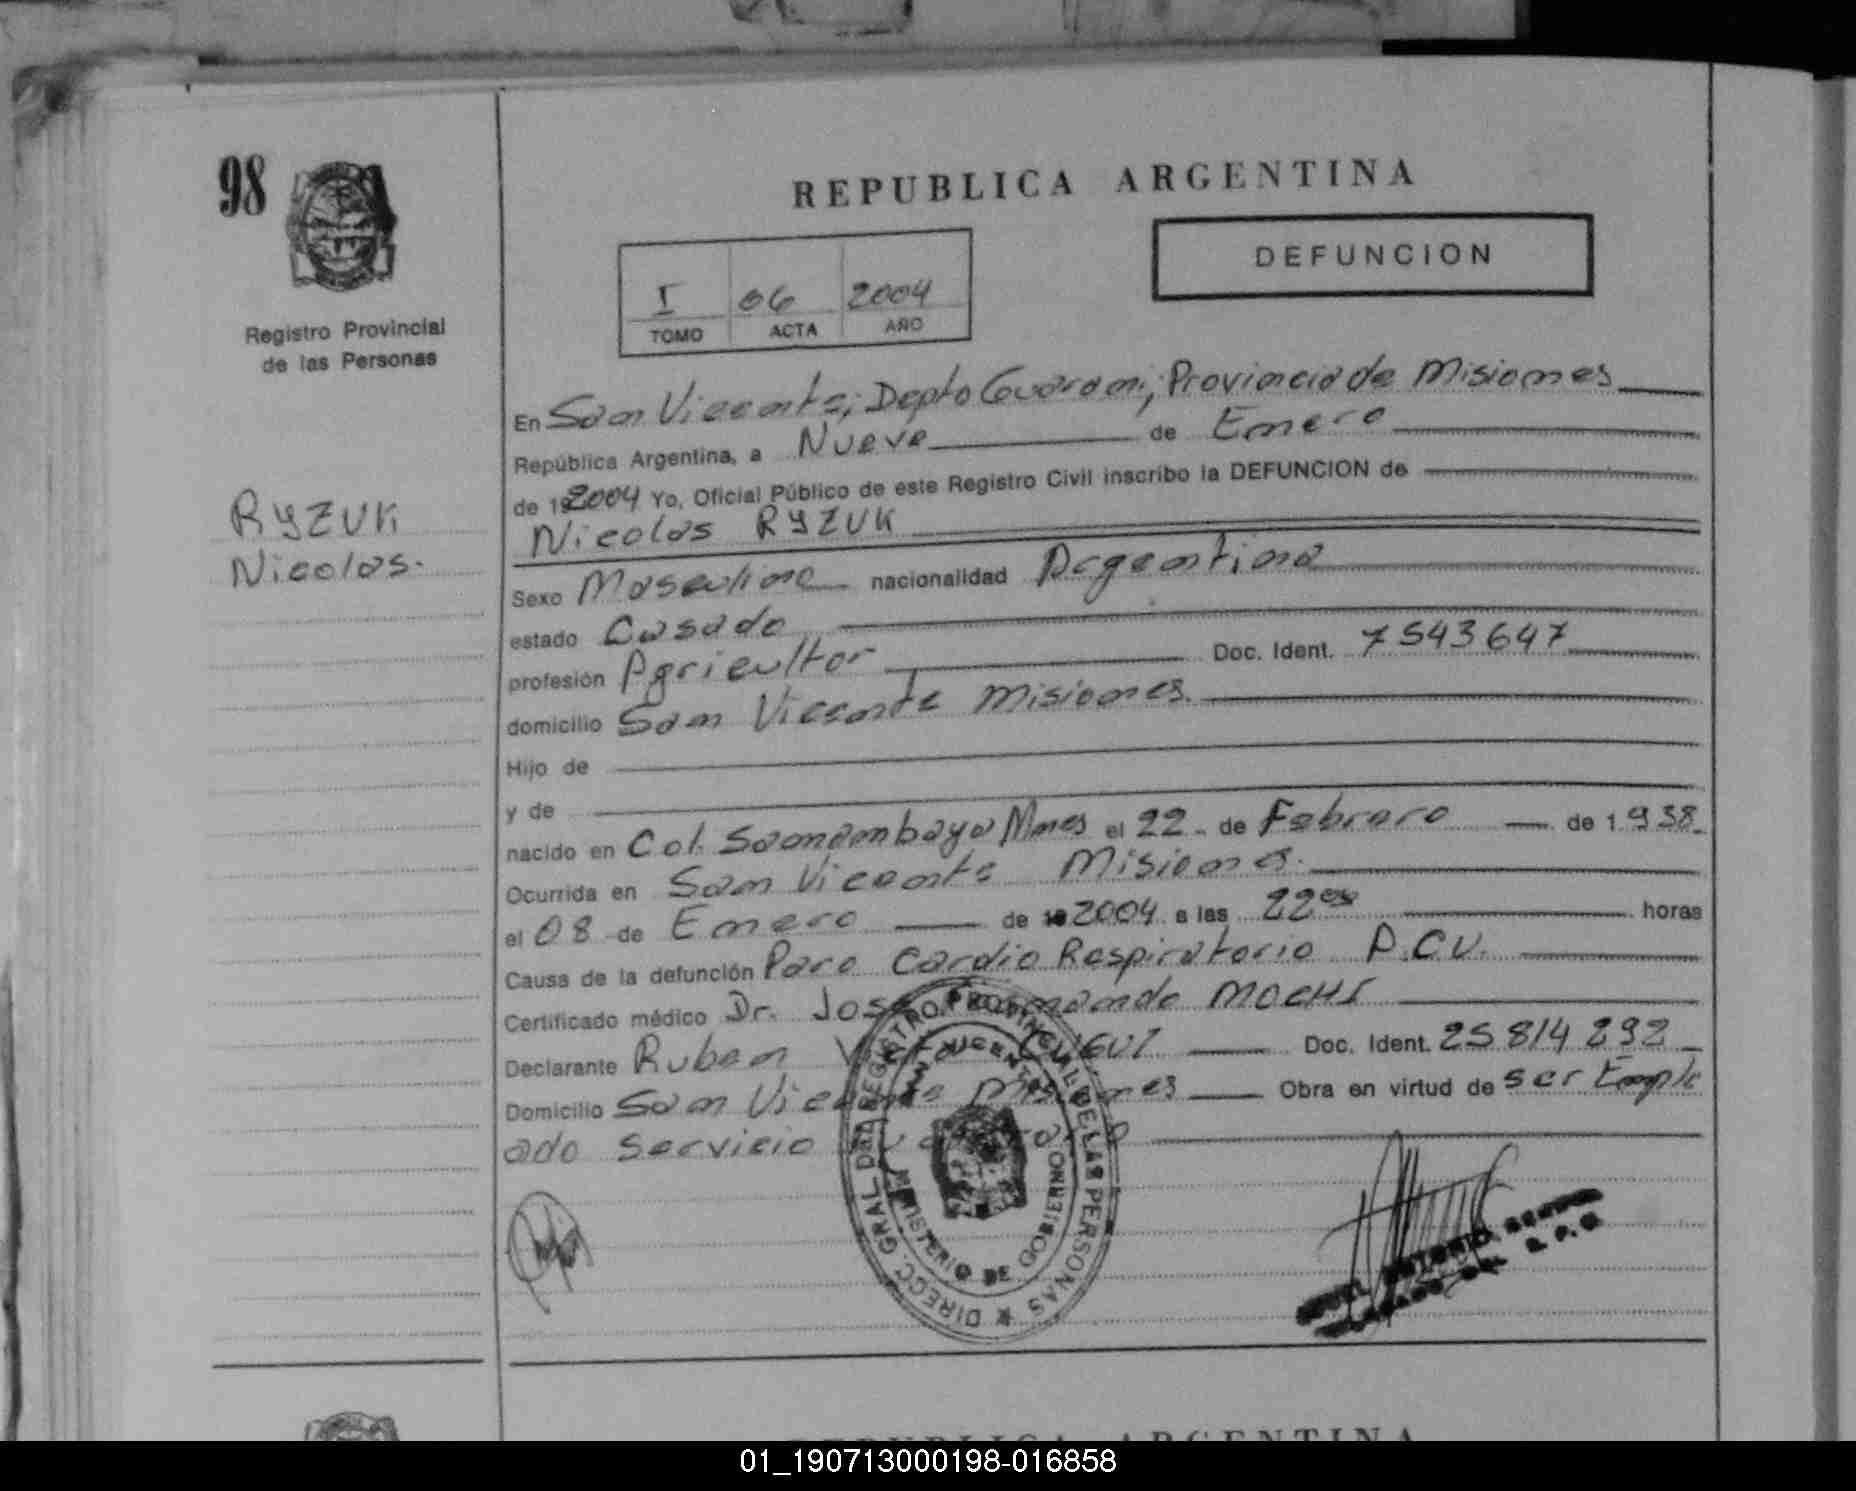 98
REPUBLICA ARGENTINA
DEFUNCION
I 06 2004
TOMO ACTA AÑO
Registro Provincial
de las Personas
RYZUK
Nicolas.
En San Vicente; Depto Guarani; Provincia de Misiones
República Argentina, a Nueve de Enero
de 192004 Yo, Oficial Público de este Registro Civil inscribo la DEFUNCION de
Nicolas RYZUK
Sexo Masculino nacionalidad Argentina
estado Casado
profesión Agricultor Doc. Ident. 7543647
domicilio San Vicente Misiones.
Hijo de
y de
nacido en Col. Mnes el 22 de Febrero de 1.938.
Ocurrida en San Vicente Misiones.
el 08 de Enero de 192004 a las 22 horas
Causa de la defunción Paro Cardio Respiratorio A.C.V.
Certificado médico Dr. José MOCHI
Declarante Ruben Doc. Ident. 25814292
Domicilio San Vicente Misiones Obra en virtud de ser Emple
ado servicio
DIRECC. GRAL DEL REGISTRO PROVINCIAL DE LAS PERSONAS
SAN VICENTE
MINISTERIO DE GOBIERNO
REPUBLICA ARGENTINA
01_190713000198-016858